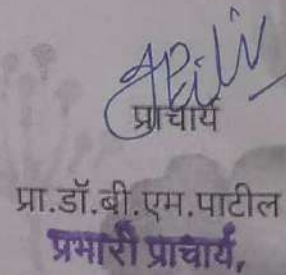 प्राचार्य
प्रा.डॉ.बी.एम.पाटील
प्रभारी प्राचार्य,